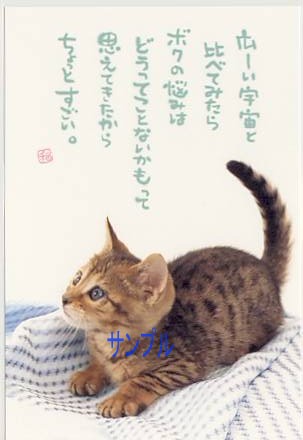 広ーい宇宙と
比べてみたら
ボクの悩みは
どうってことないかもって
思えてきたから
ちょっとすごい。
サンプル